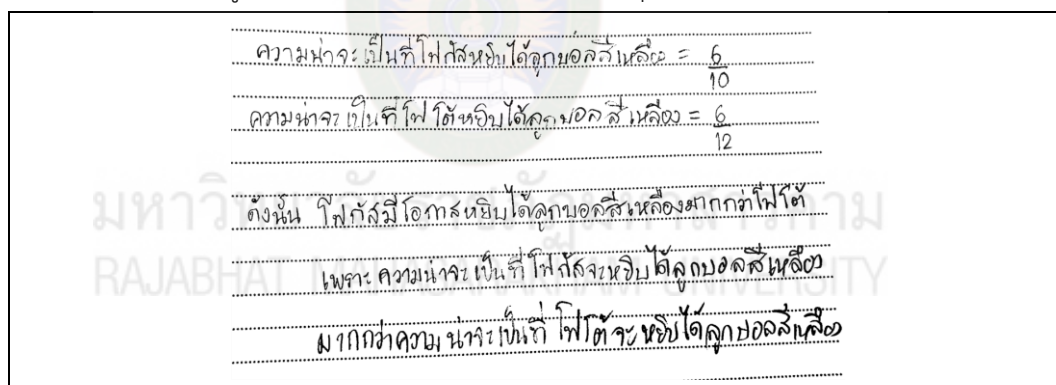 ความน่าจะเป็นที่โฟกัสหยิบได้ลูกบอลสีเหลือง = 6/10
ความน่าจะเป็นที่โฟโต้หยิบได้ลูกบอลสีเหลือง = 6/12
ดังนั้น โฟกัสมีโอกาสหยิบได้ลูกบอลสีเหลืองมากกว่าโฟโต้
เพราะ ความน่าจะเป็นที่โฟกัสจะหยิบได้ลูกบอลสีเหลือง
มากกว่าความน่าจะเป็นที่ โฟโต้ จะหยิบได้ลูกบอลสีเหลือง
มหาวิทยาลัยราชภัฏมหาสารคาม
RAJABHAT MAHASARAKHAM UNIVERSITY